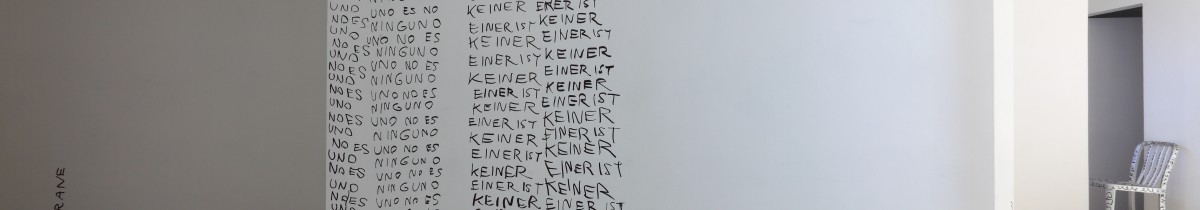 RANE
UNO UNO ES NO
NOES NINGUNO
UNO UNO NO ES
NO ES NINGUNO
UNO UNO NO ES
NOES NINGUNO
UNO UNO NO ES
NOES NINGUNO
UNO UNO NO ES
NOES NINGUNO
UNO UNO NO ES
NO ES NINGUNO
UNO UNO NO ES
NOES NINGUNO
UNO UNO NO ES
NOES
UNO
KEINER EINER IST
EINER IST KEINER
KEINER EINER IST
EINER IST KEINER
KEINER EINER IST
EINER IST KEINER
KEINER EINER IST
EINER IST KEINER
KEINER EINER IST
EINER IST KEINER
KEINER EINER IST
EINER IST KEINER
KEINER EINER IST